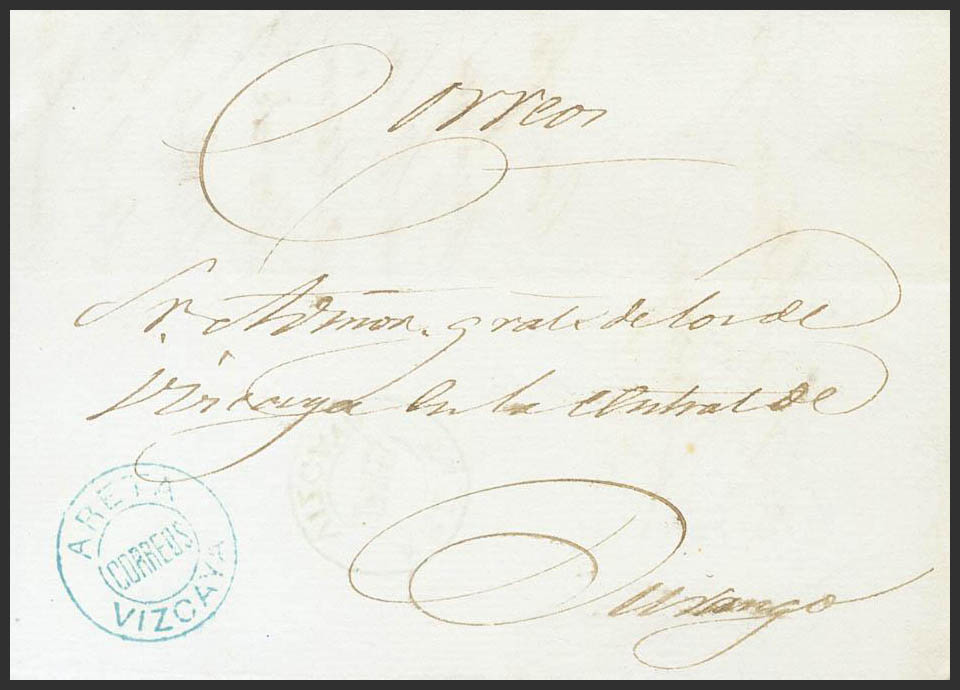 Correos
Sr. Admõn. gral. de los de
Vizcaya en la Central de
Durango
ARETA
CORREOS
VIZCAYA